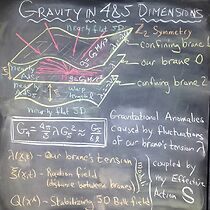 GRAVITY IN 4&5 DIMENSIONS
nearly flat 5D
Z₂ Symmetry
confining brane 1
our brane 0
confining brane 2
nearly flat 5D
Gravitational Anomalies
caused by fluctuations
of our brane's tension
λ(x,t) - Our brane's tension
ξ(x,t) - Radion field
(distance between branes)
Q(x⁴) - Stabilizing 5D Bulk field
coupled by
my Effective
Action
S